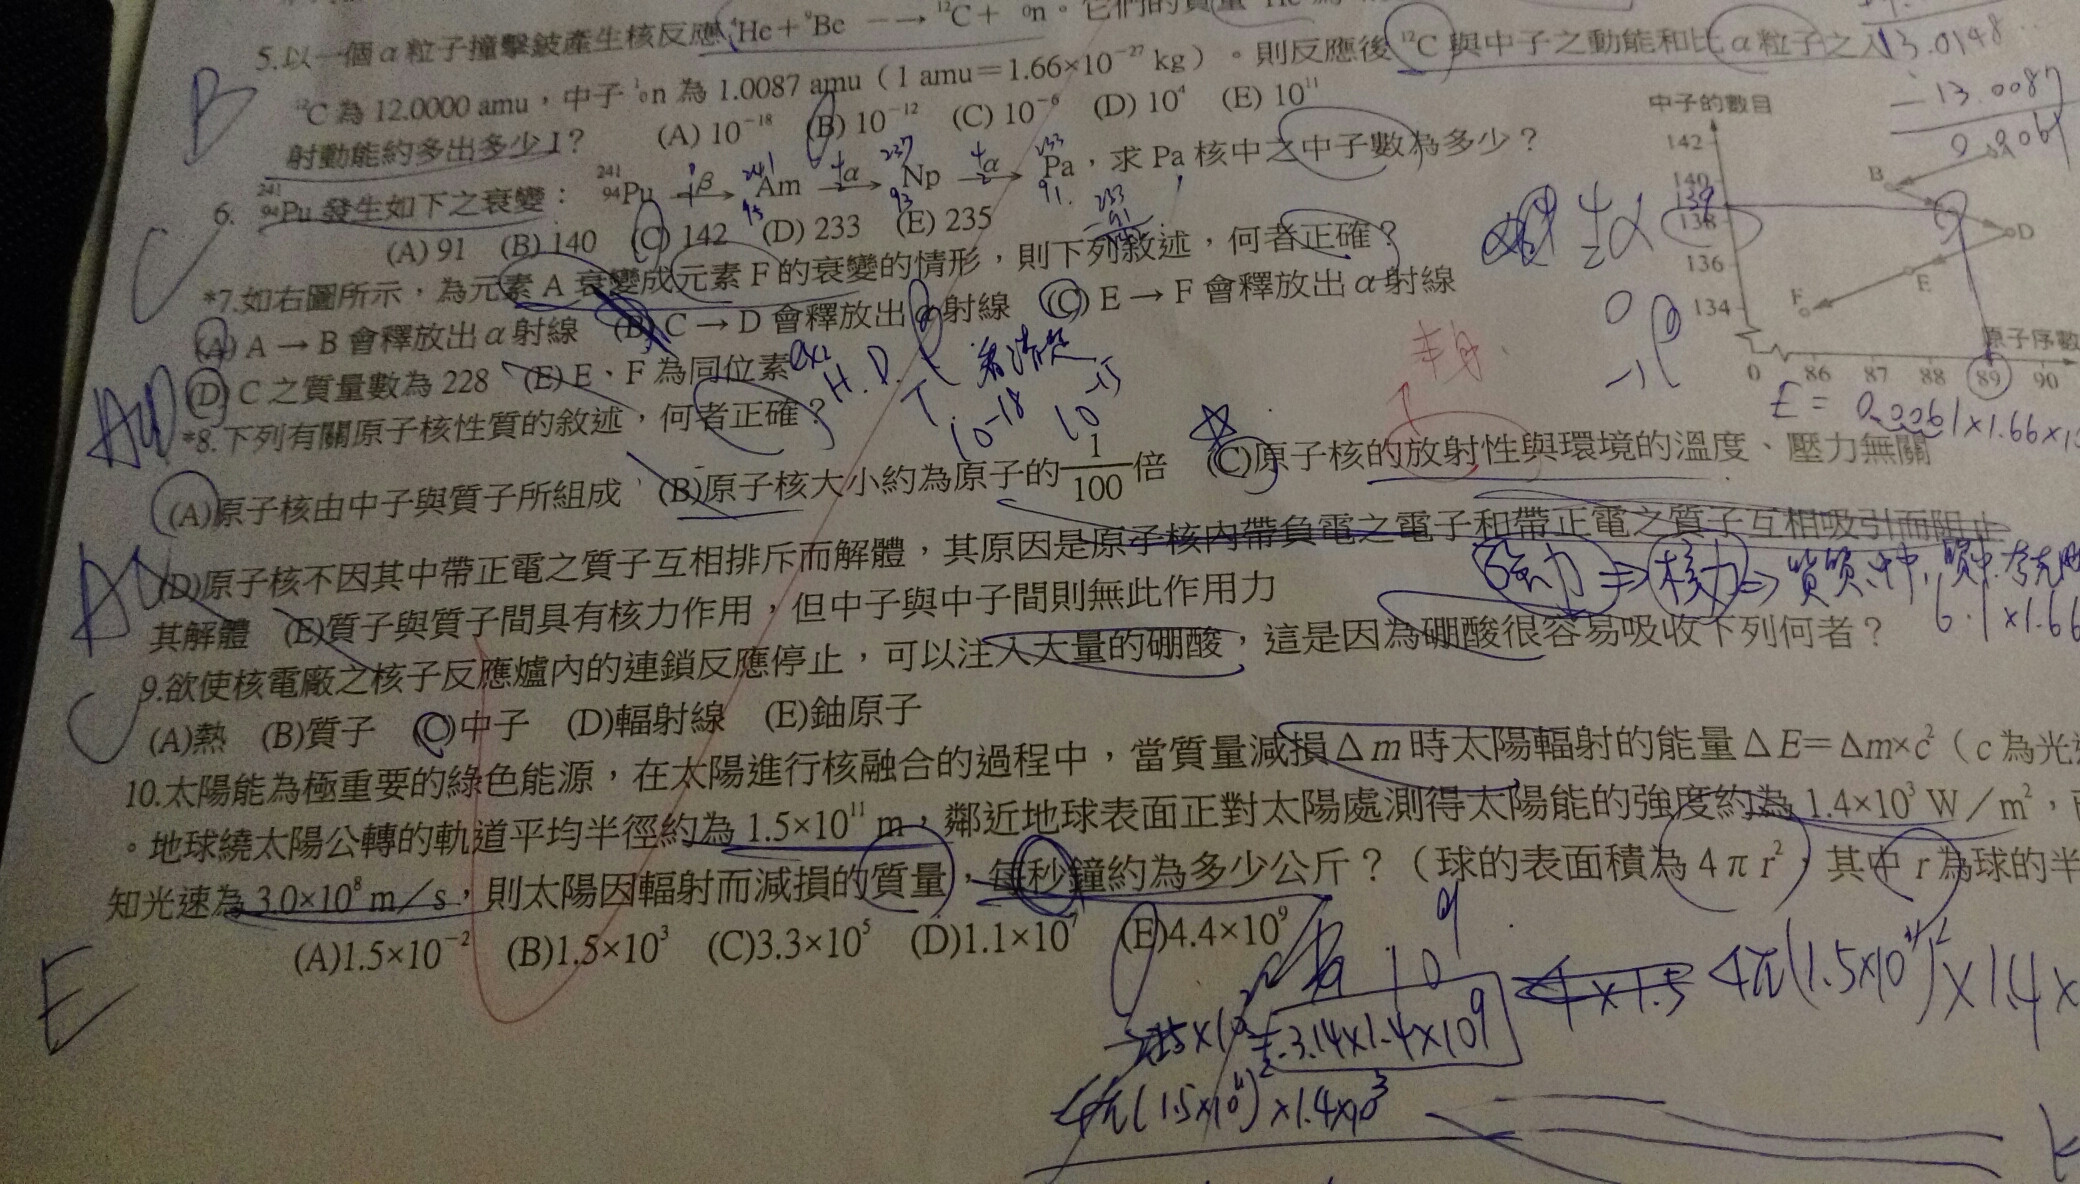 5.以一個α粒子撞擊鈹產生核反應 ⁴He＋⁹Be −−→ ¹²C＋ ₀n。它們的質量 He
¹²C 為 12.0000 amu，中子 ¹₀n 為 1.0087 amu（1 amu＝1.66×10⁻²⁷ kg）。則反應後 ¹²C 與中子之動能和比α粒子之入
射動能約多出多少J？ (A) 10⁻¹⁸ (B) 10⁻¹² (C) 10⁻⁶ (D) 10⁴ (E) 10¹¹
13.0148
−13.0087
B
6. ²⁴¹₉₄Pu 發生如下之衰變： ²⁴¹₉₄Pu β→ Am α→ Np α→ Pa，求 Pa 核中之中子數為多少？
241 237 233
95 93 91
(A) 91 (B) 140 (C) 142 (D) 233 (E) 235
C
*7.如右圖所示，為元素 A 衰變成元素 F 的衰變的情形，則下列敘述，何者正確？
(A) A → B 會釋放出α射線 (B) C → D 會釋放出α射線 (C) E → F 會釋放出α射線
(D) C 之質量數為 228 (E) E、F 為同位素
H. D. T
10⁻¹⁸ 10⁻¹⁵
中子的數目
142
140
139
138
136
134
B
D
E
F
原子序數
0 86 87 88 89 90
本身
*8.下列有關原子核性質的敘述，何者正確？
(A)原子核由中子與質子所組成 (B)原子核大小約為原子的 1/100 倍 (C)原子核的放射性與環境的溫度、壓力無關
(D)原子核不因其中帶正電之質子互相排斥而解體，其原因是原子核內帶負電之電子和帶正電之質子互相吸引而阻止
其解體 (E)質子與質子間具有核力作用，但中子與中子間則無此作用力
強力 ⇒ 核力 ⇒
9.欲使核電廠之核子反應爐內的連鎖反應停止，可以注入大量的硼酸，這是因為硼酸很容易吸收下列何者？
(A)熱 (B)質子 (C)中子 (D)輻射線 (E)鈾原子
C
10.太陽能為極重要的綠色能源，在太陽進行核融合的過程中，當質量減損 Δm 時太陽輻射的能量 ΔE＝Δm×c²（c 為光
。地球繞太陽公轉的軌道平均半徑約為 1.5×10¹¹ m，鄰近地球表面正對太陽處測得太陽能的強度約為 1.4×10³ W／m²，
知光速為 3.0×10⁸ m／s，則太陽因輻射而減損的質量，每秒鐘約為多少公斤？（球的表面積為 4πr²，其中 r 為球的半
(A)1.5×10⁻² (B)1.5×10³ (C)3.3×10⁵ (D)1.1×10⁷ (E)4.4×10⁹
E
4π(1.5×10¹¹)²×1.4×
3.14×1.4×10⁹
4π(1.5×10¹¹)²×1.4×10³